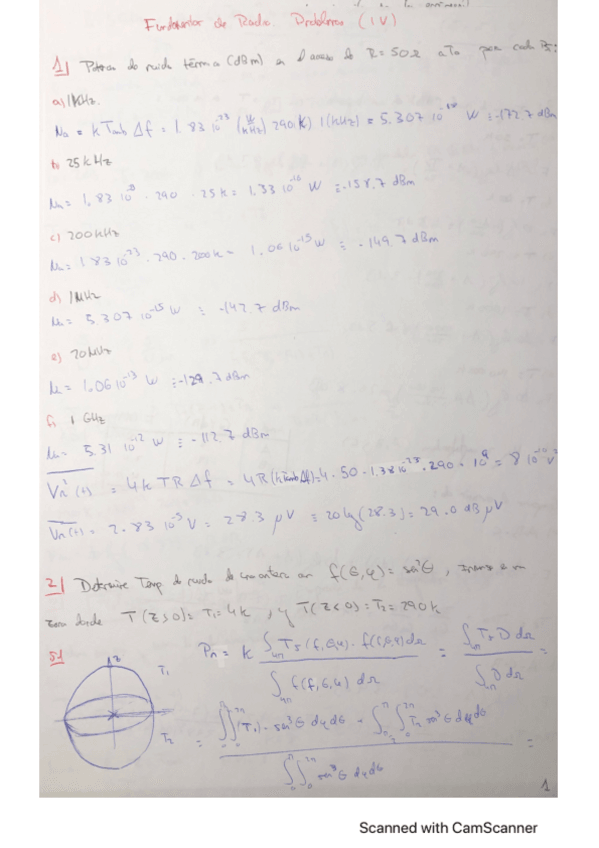 Fundamentos de Radio. Problemas (IV)
1) Potencia de ruido térmico (dBm) en R = 50Ω a T0 para cada B:
a) 1KHz.
Nn = k Tamb Δf = 1.83 10^-23 290(K) 1(kHz) = 5.307 10^-18 W ≡ -172.7 dBm
b) 25 kHz
Nn = 1.83 10 · 290 · 25k = 1.33 10^-16 W ≡ -158.7 dBm
c) 200 kHz
Nn = 1.83 10^-23 · 290 · 200k = 1.06 10^-15 W ≡ -149.7 dBm
d) 1MHz
Nn = 5.307 10^-15 W ≡ -142.7 dBm
e) 20MHz
Nn = 1.06 10^-13 W ≡ -129.7 dBm
f) 1 GHz
Nn = 5.31 10^-12 W ≡ -112.7 dBm
Vn²(t) = 4kTRΔf = 4R(kTambΔf) = 4 · 50 · 1.38 10^-23 · 290 · 10^9 = 8 10^-10 V
Vn(t) = 2.83 10^-5 V = 28.3 μV ≡ 20 log(28.3) = 29.0 dBμV
2) Determine Temp. de ruido de una antena con f(θ,φ) = sen²θ,
zona donde T(z>0) = T1 = 4k, y T(z<0) = T2 = 290k
Sol
z
T1
T2
Pn = k ∫4π Ts(f,θ,φ) · f(f,θ,φ) dΩ / ∫4π f(f,θ,φ) dΩ = ∫4π Ts D dΩ / ∫4π D dΩ =
= ∫∫ (T1) · sen³θ dφdθ + ∫∫ T2 sen³θ dφdθ / ∫∫ sen³θ dφdθ =
1
Scanned with CamScanner